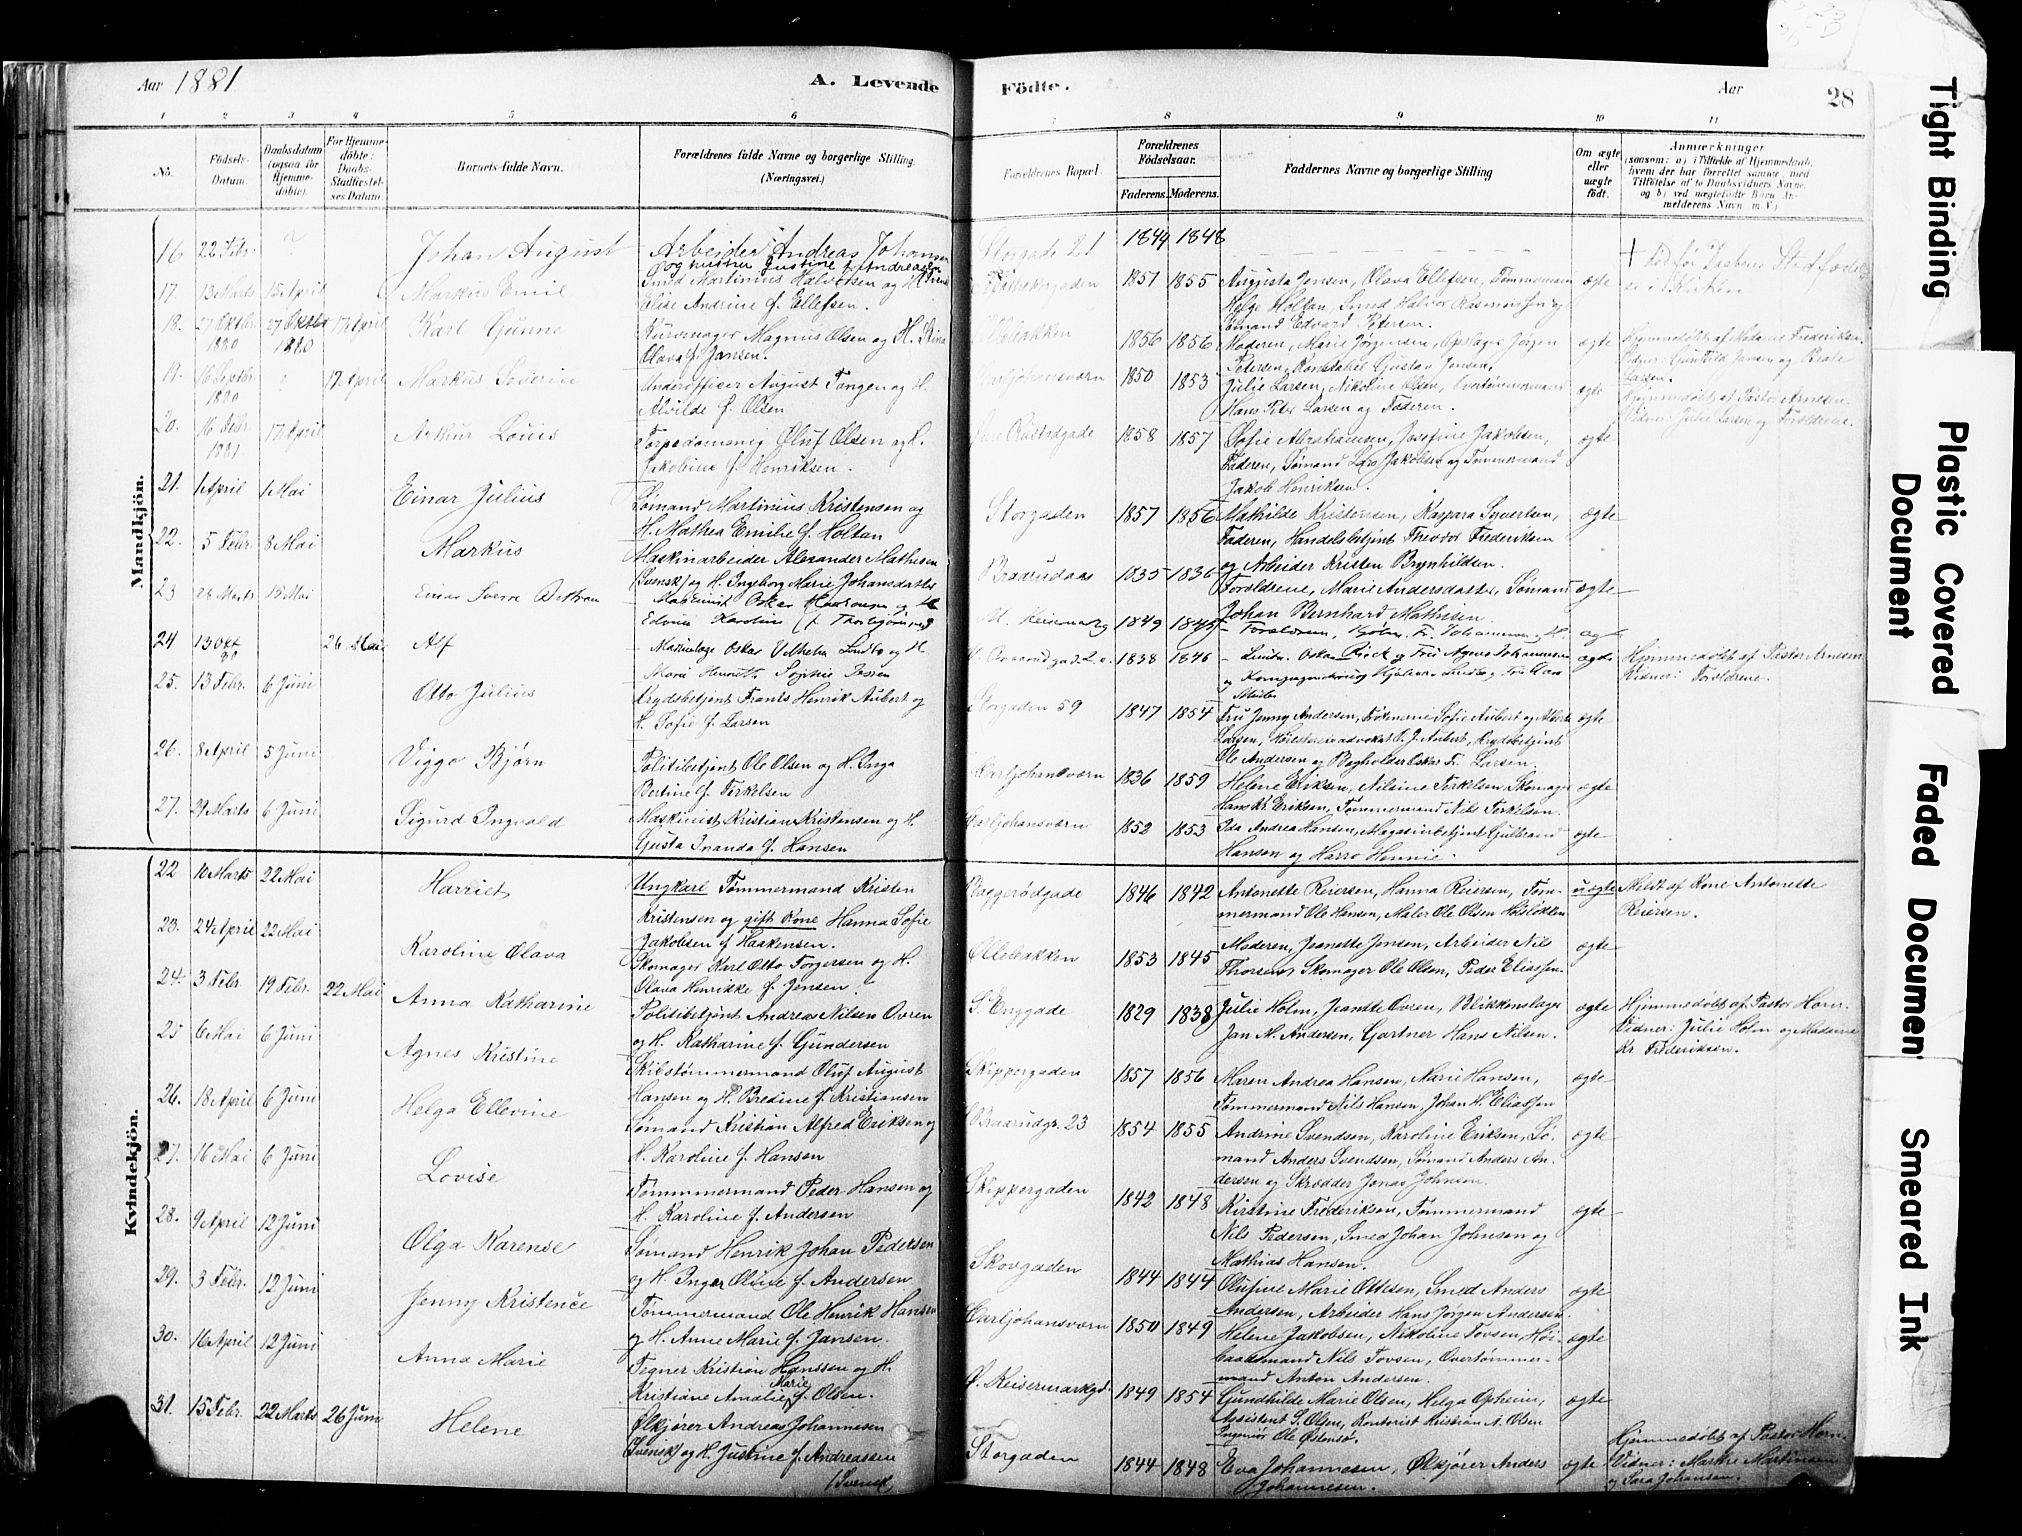 Aar 1881
A. Levende
1 2 3 4 5 6
No.
Födsels-Datum.
Daabsdatum (ogsaa for Hjemme-döbte).
For Hjemme-döbte: Daabs-Stadfæstelses Datum.
Barnets fulde Navn.
Forældrenes fulde Navne og borgerlige Stilling. (Næringsvei.)
Mandkjön.
16 22 Febr. ? Johan August Arbeider Andreas Johannsen
og hustru Justine f. Andreasen
17. 13 Marts 15 April Markus Emil Smed Martinius Halvorsen og H.
Elise Andrine f. Ellefsen.
18. 27 Oktbr 1880 27 Oktbr 1880 17 April Karl Gunne Kurvmager Magnus Olsen og H. Stina
Olava f. Jansen.
19. 16 Septbr 1880 ? 17 April Markus Severin Underofficer August Tangen og H.
Alvilde f. Olsen
20. 16 Febr 1881 17 April Arthur Louis Torpedomenig Oluf Olsen og H.
Jakobine f. Henriksen.
21. 1 April 1 Mai Einar Julius Sømand Martinius Kristensen og
H. Mathea Emilie f. Holtan
22. 5 Febr. 8 Mai Markus Maskinarbeider Alexander Mathisen
(Svensk) og H. Ingeborg Marie Johansdatter
23 28 Marts 15 Mai Einar Sverre Maskinist Oskar
Edvine Karoline
24 13 Okt 80 26 Mai Alf Oskar Vilhelm og H
Marie Henriette Sophie Jessen
25. 13 Febr. 6 Juni Otto Julius Krydsbetjent Frants Henrik Aubert og
H. Sofie f. Larsen
26. 8 April 5 Juni Viggo Bjørn Politibetjent Ole Olsen og H. Inga
Bertine f. Terkelsen
27. 29 Marts 6 Juni Sigurd Ingvald Maskinist Kristian Kristensen og H.
Gusta Inanda f. Hansen
Kvindekjön.
22 10 Marts 22 Mai Harriet Ungkarl Tømmermand Kristen
Kristensen og gift Kone Hanna Sofie
Jakobsen f Haakensen.
23. 24 April 22 Mai Karoline Olava Skomager Karl Otto Torgersen og H.
Olava Henrikke f. Jensen.
24. 3 Febr. 19 Febr. 22 Mai Anna Katharine Politibetjent Andreas Nilsen Ovren
og H. Katharine f. Gundersen
25 6 Mai 6 Juni Agnes Kristine Skibstømmermand Oluf August
Hansen og H. Bredine f. Kristiansen
26. 18 April 6 Juni Helga Ellevine Sømand Kristian Alfred Eriksen og
H. Karoline f. Hansen
27. 16 Mai 6 Juni Lovise Tømmermand Peder Hansen og
H. Karoline f. Andersen
28. 9 April 12 Juni Olga Karense Sømand Henrik Johan Pedersen
og H. Inger Oline f. Andersen
29. 3 Febr. 12 Juni Jenny Kristence Tømmermand Ole Henrik Hansen
og H. Anne Marie f. Jansen.
30. 16 April 12 Juni Anna Marie Tegner Kristian Hanssen og H.
Kristiane Amalie Marie f. Olsen.
31. 15 Febr. 22 Marts 26 Juni Helene Ølkjører Andreas Johannesen
(Svensk) og H. Justine f. Andreassen
(Svensk)
Födte.
Aar
28
7 8 9 10 11
Forældrenes Bopæl.
Forældrenes Födselsaar.
Faderens. Moderens.
Faddernes Navne og borgerlige Stilling
Om ægte eller uægte født.
Anmærkninger
(saasom: a) i Tilfælde af Hjemmedaab, hvem der har forrettet samme, med Tilföielse af to Daabsvidners Navne, og b) ved uægtefødte Börn Anmelderens Navn m. V.)
Storgade 21 1844 1848
1851 1855 Augusta Jensen, Olava Ellefsen, Tømmermann ægte
Helge Holtan, Smed Halvor Rasmussen og
Sømand Edvard Petersen.
Øllebakken 1856 1856 Moderen, Marie Jørgensen, Opslager Jørgen ægte Hjemmedøbt af Madame Frederiksen.
Petersen, Konstabel Gustav Jensen, Vidner: Gunhild Jensen og Beate
Larsen.
Carljohansværn 1850 1853 Julie Larsen, Nikoline Olsen, Overtømmermand ægte Hjemmedøbt af Pastor Arnesen.
Hans Peter Larsen og Faderen. Vidner: Julie Larsen og Forældrene.
1858 1857 Sofie Abrahamsen, Josefine Jakobsen, ægte
Faderen, Sømand Lars Jakobsen og Tømmermand
Jakob Henriksen.
Storgaden 1857 1856 Mathilde Kristensen, Kaspara Syversen, ægte
Faderen, Handelsbetjent Theodor Frederiksen
og Arbeider Kristen Brynhildsen.
Braarudgs 1835 1836 Forældrene, Marie Andersdatter, Sømand ægte
Johan Bernhard Mathisen
1849 1845 Forældrene, ægte
1838 1846 Oskar og Fru Agnes Johannessen ægte Hjemmedøbt af Pastor Arnesen
Vidner: Forældrene.
Storgaden 59 1847 1854 Fru Jenny Andersen, Frøknerne Sofie Aubert og ægte
Larsen, Høiesteretsadvokat Aubert, Krydsbetjent
Ole Andersen og Bogholder Oskar Fr. Larsen.
Carljohansværn 1836 1859 Helene Eriksen, Nilsine Terkelsen, Skomager ægte
Hans Kr. Eriksen, Tømmermand Nils Terkelsen.
Carljohansværn 1852 1853 Ida Andrea Hansen, Magasinbetjent Gulbrand ægte
Hansen og Harro Hennie.
Naggerødgade 1846 1842 Antonette Reiersen, Hanna Reiersen, Tøm- uægte Meldt af Kone Antonette
mermand Ole Hansen, Maler Ole Olsen Holsløkken Reiersen.
Øllebakken 1853 1845 Moderen, Jeanette Jensen, Arbeider Nils ægte
Thorsen, Skomager Ole Olsen, Peder Eliassen.
S. Enggade 1829 1838 Julie Holm, Jeanette Ovren, Blikkenslager ægte Hjemmedøbt af Pastor Horn.
Jan M. Andersen, Gartner Hans Nilsen. Vidner: Julie Holm og Madame
Kr. Frederiksen.
Skippergaden 1857 1856 Maren Andrea Hansen, Marie Hansen, ægte
Tømmermand Nils Hansen, Johan H. Eliassen
Braarudgt. 23 1854 1855 Andrine Svendsen, Karoline Eriksen, Sø- ægte
mand Anders Svendsen, Sømand Anders An-
dersen og Skrædder Jonas Johnsen.
Skippergaden 1842 1848 Kirstine Frederiksen, Tømmermand ægte
Nils Pedersen, Smed Johan Johnsen og
Mathias Hansen.
Skovgaden 1844 1844 Olufine Marie Ottesen, Smed Anders ægte
Andersen, Arbeider Hans Jørgen Andersen.
Carljohansværn 1850 1849 Helene Jakobsen, Nikoline Tovsen, Høi- ægte
baadsmand Nils Tovsen, Overtømmer-
mand Anton Andersen.
Ø. Keisermarkgd. 1849 1854 Gundhilde Marie Olsen, Helga Opheim, ægte
Assistent S. Olsen, Kontorist Kristian A. Olsen
Ingeniør Ole Østensø.
Storgaden 1844 1848 Eva Johannesen, Ølkjører Anders ægte Hjemmedøbt af Pastor Horn.
Johannesen. Vidner: Marthe Martinsen
og Sara Johansen.
Tight Binding
Plastic Covered Document
Faded Document
Smeared Ink